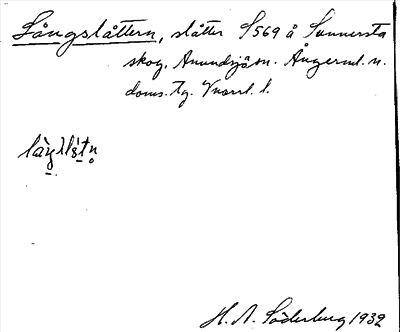 Långslåttern, slåtter S569 å Sunnersta
skog, Anundsjö sn. Ångerml. n.
doms. Tg. l.
H. A. Söderberg 1932